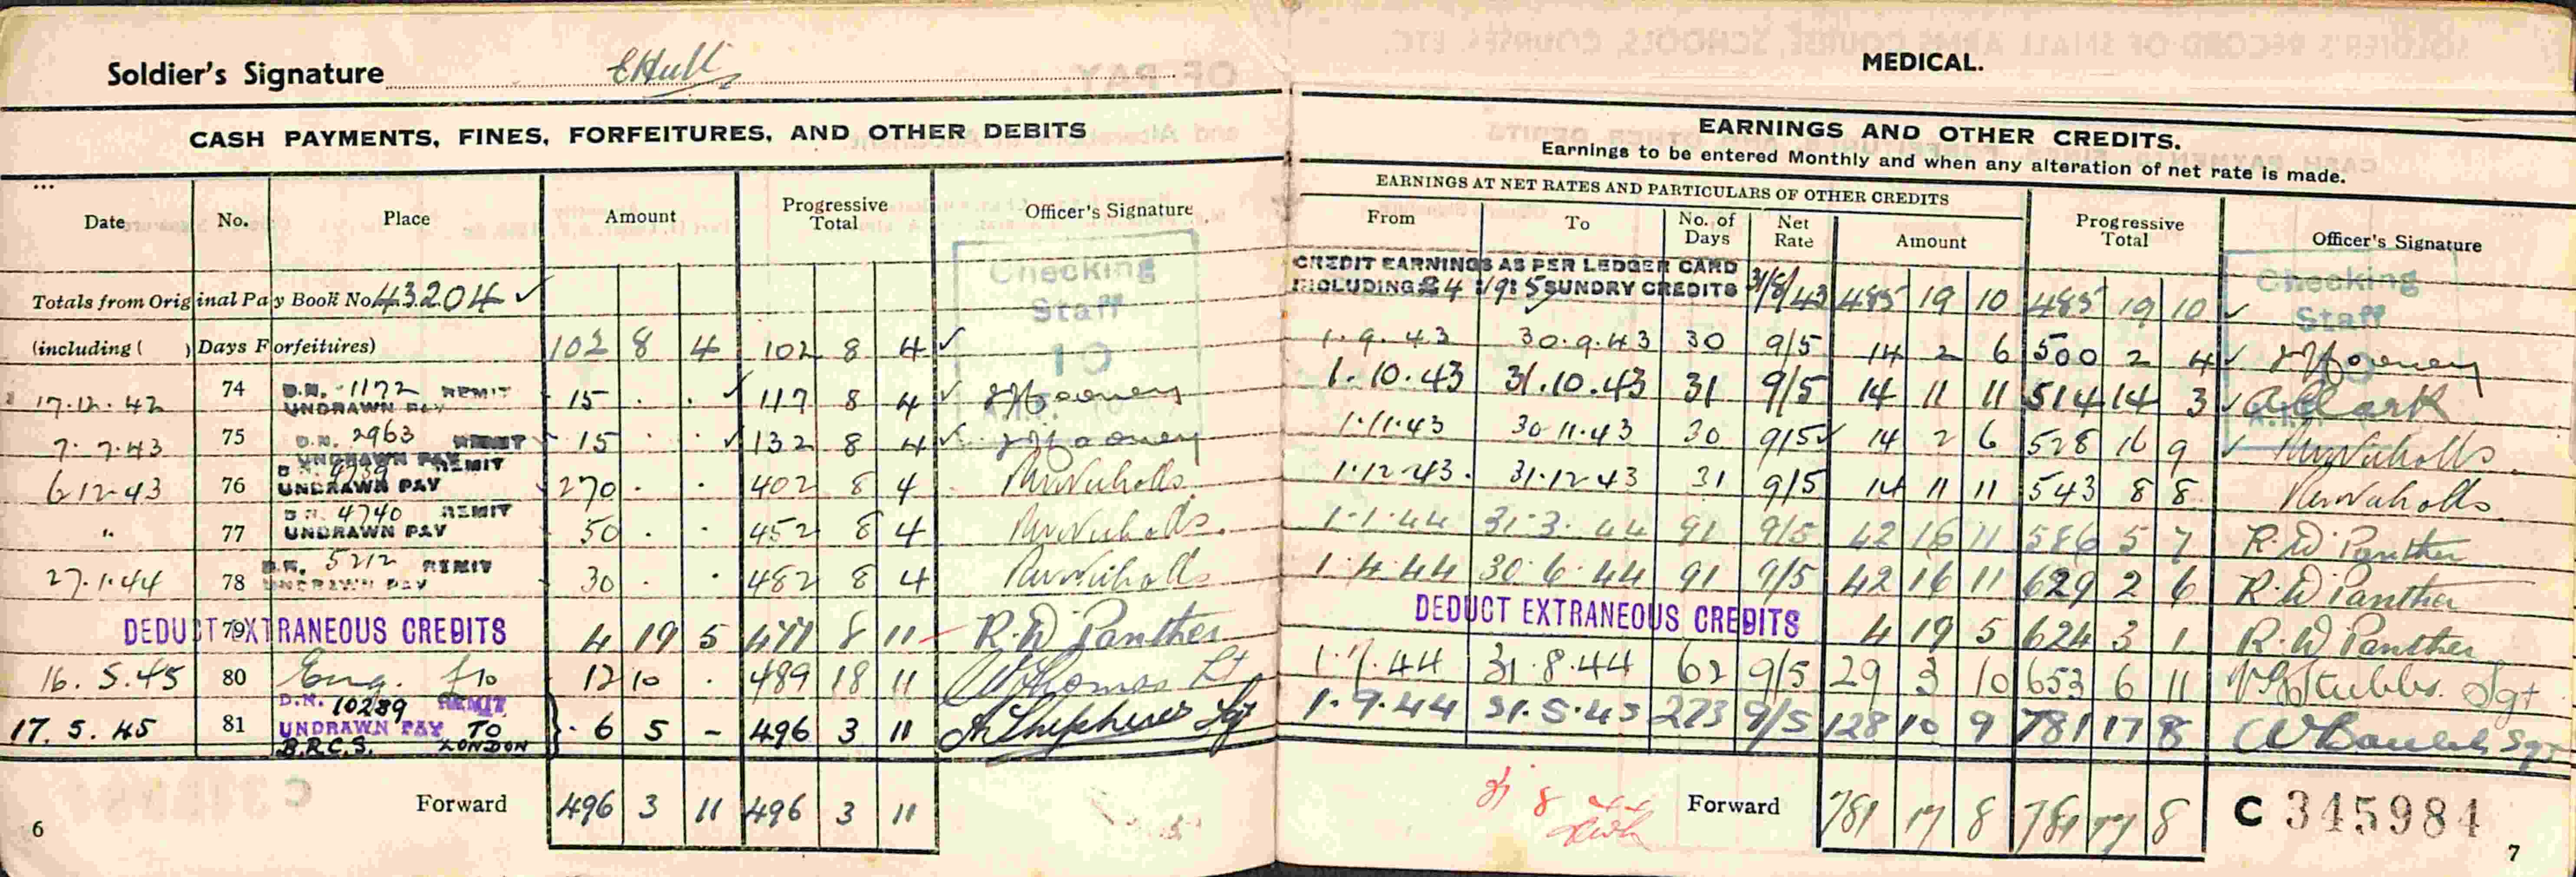 Soldier's Signature EHull
CASH PAYMENTS, FINES, FORFEITURES, AND OTHER DEBITS
Date No. Place Amount Progressive Total Officer's Signature
Checking Staff 10
Totals from Original Pay Book No. 43204 ✓
(including ( ) Days Forfeitures) 102 8 4 102 8 4 ✓
17.12.42 74 D.N. 1172 REMIT UNDRAWN PAY 15 . . ✓ 117 8 4 ✓
7.7.43 75 D.N. 2963 REMIT UNDRAWN PAY 15 . . ✓ 132 8 4 ✓
6.12.43 76 D.N. 4739 REMIT UNDRAWN PAY 270 . . 402 8 4 RWNicholls
" 77 D.N. 4740 REMIT UNDRAWN PAY 50 . . 452 8 4 RWNicholls
27.1.44 78 D.N. 5212 REMIT UNDRAWN PAY 30 . . 482 8 4 RWNicholls
79 DEDUCT EXTRANEOUS CREDITS 4 19 5 477 8 11 R.W Panther
16.5.45 80 Eng. 12 10 . 489 18 11 Thomas Lt
17.5.45 81 D.N. 10289 REMIT UNDRAWN PAY TO B.R.C.S. LONDON 6 5 – 496 3 11 Sgt
Forward 496 3 11 496 3 11
6
MEDICAL.
EARNINGS AND OTHER CREDITS.
Earnings to be entered Monthly and when any alteration of net rate is made.
EARNINGS AT NET RATES AND PARTICULARS OF OTHER CREDITS
From To No. of Days Net Rate Amount Progressive Total Officer's Signature
Checking Staff
CREDIT EARNINGS AS PER LEDGER CARD
INCLUDING £4:19:5 SUNDRY CREDITS 31/8/43 485 19 10 485 19 10 ✓
1.9.43 30.9.43 30 9/5 14 2 6 500 2 4 ✓
1.10.43 31.10.43 31 9/5 14 11 11 514 14 3 ✓ A Clark
1.11.43 30.11.43 30 9/5 ✓ 14 2 6 528 16 9 ✓ RWNicholls
1.12.43. 31.12.43 31 9/5 14 11 11 543 8 8 RWNicholls
1.1.44 31.3.44 91 9/5 42 16 11 586 5 7 R.W Panther
1.4.44 30.6.44 91 9/5 42 16 11 629 2 6 R.W Panther
DEDUCT EXTRANEOUS CREDITS 4 19 5 624 3 1 R.W Panther
1.7.44 31.8.44 62 9/5 29 3 10 653 6 11 Stubbs. Sgt
1.9.44 31.5.45 273 9/5 128 10 9 781 17 8 Sgt
Forward 781 17 8 781 17 8
C 345984
7